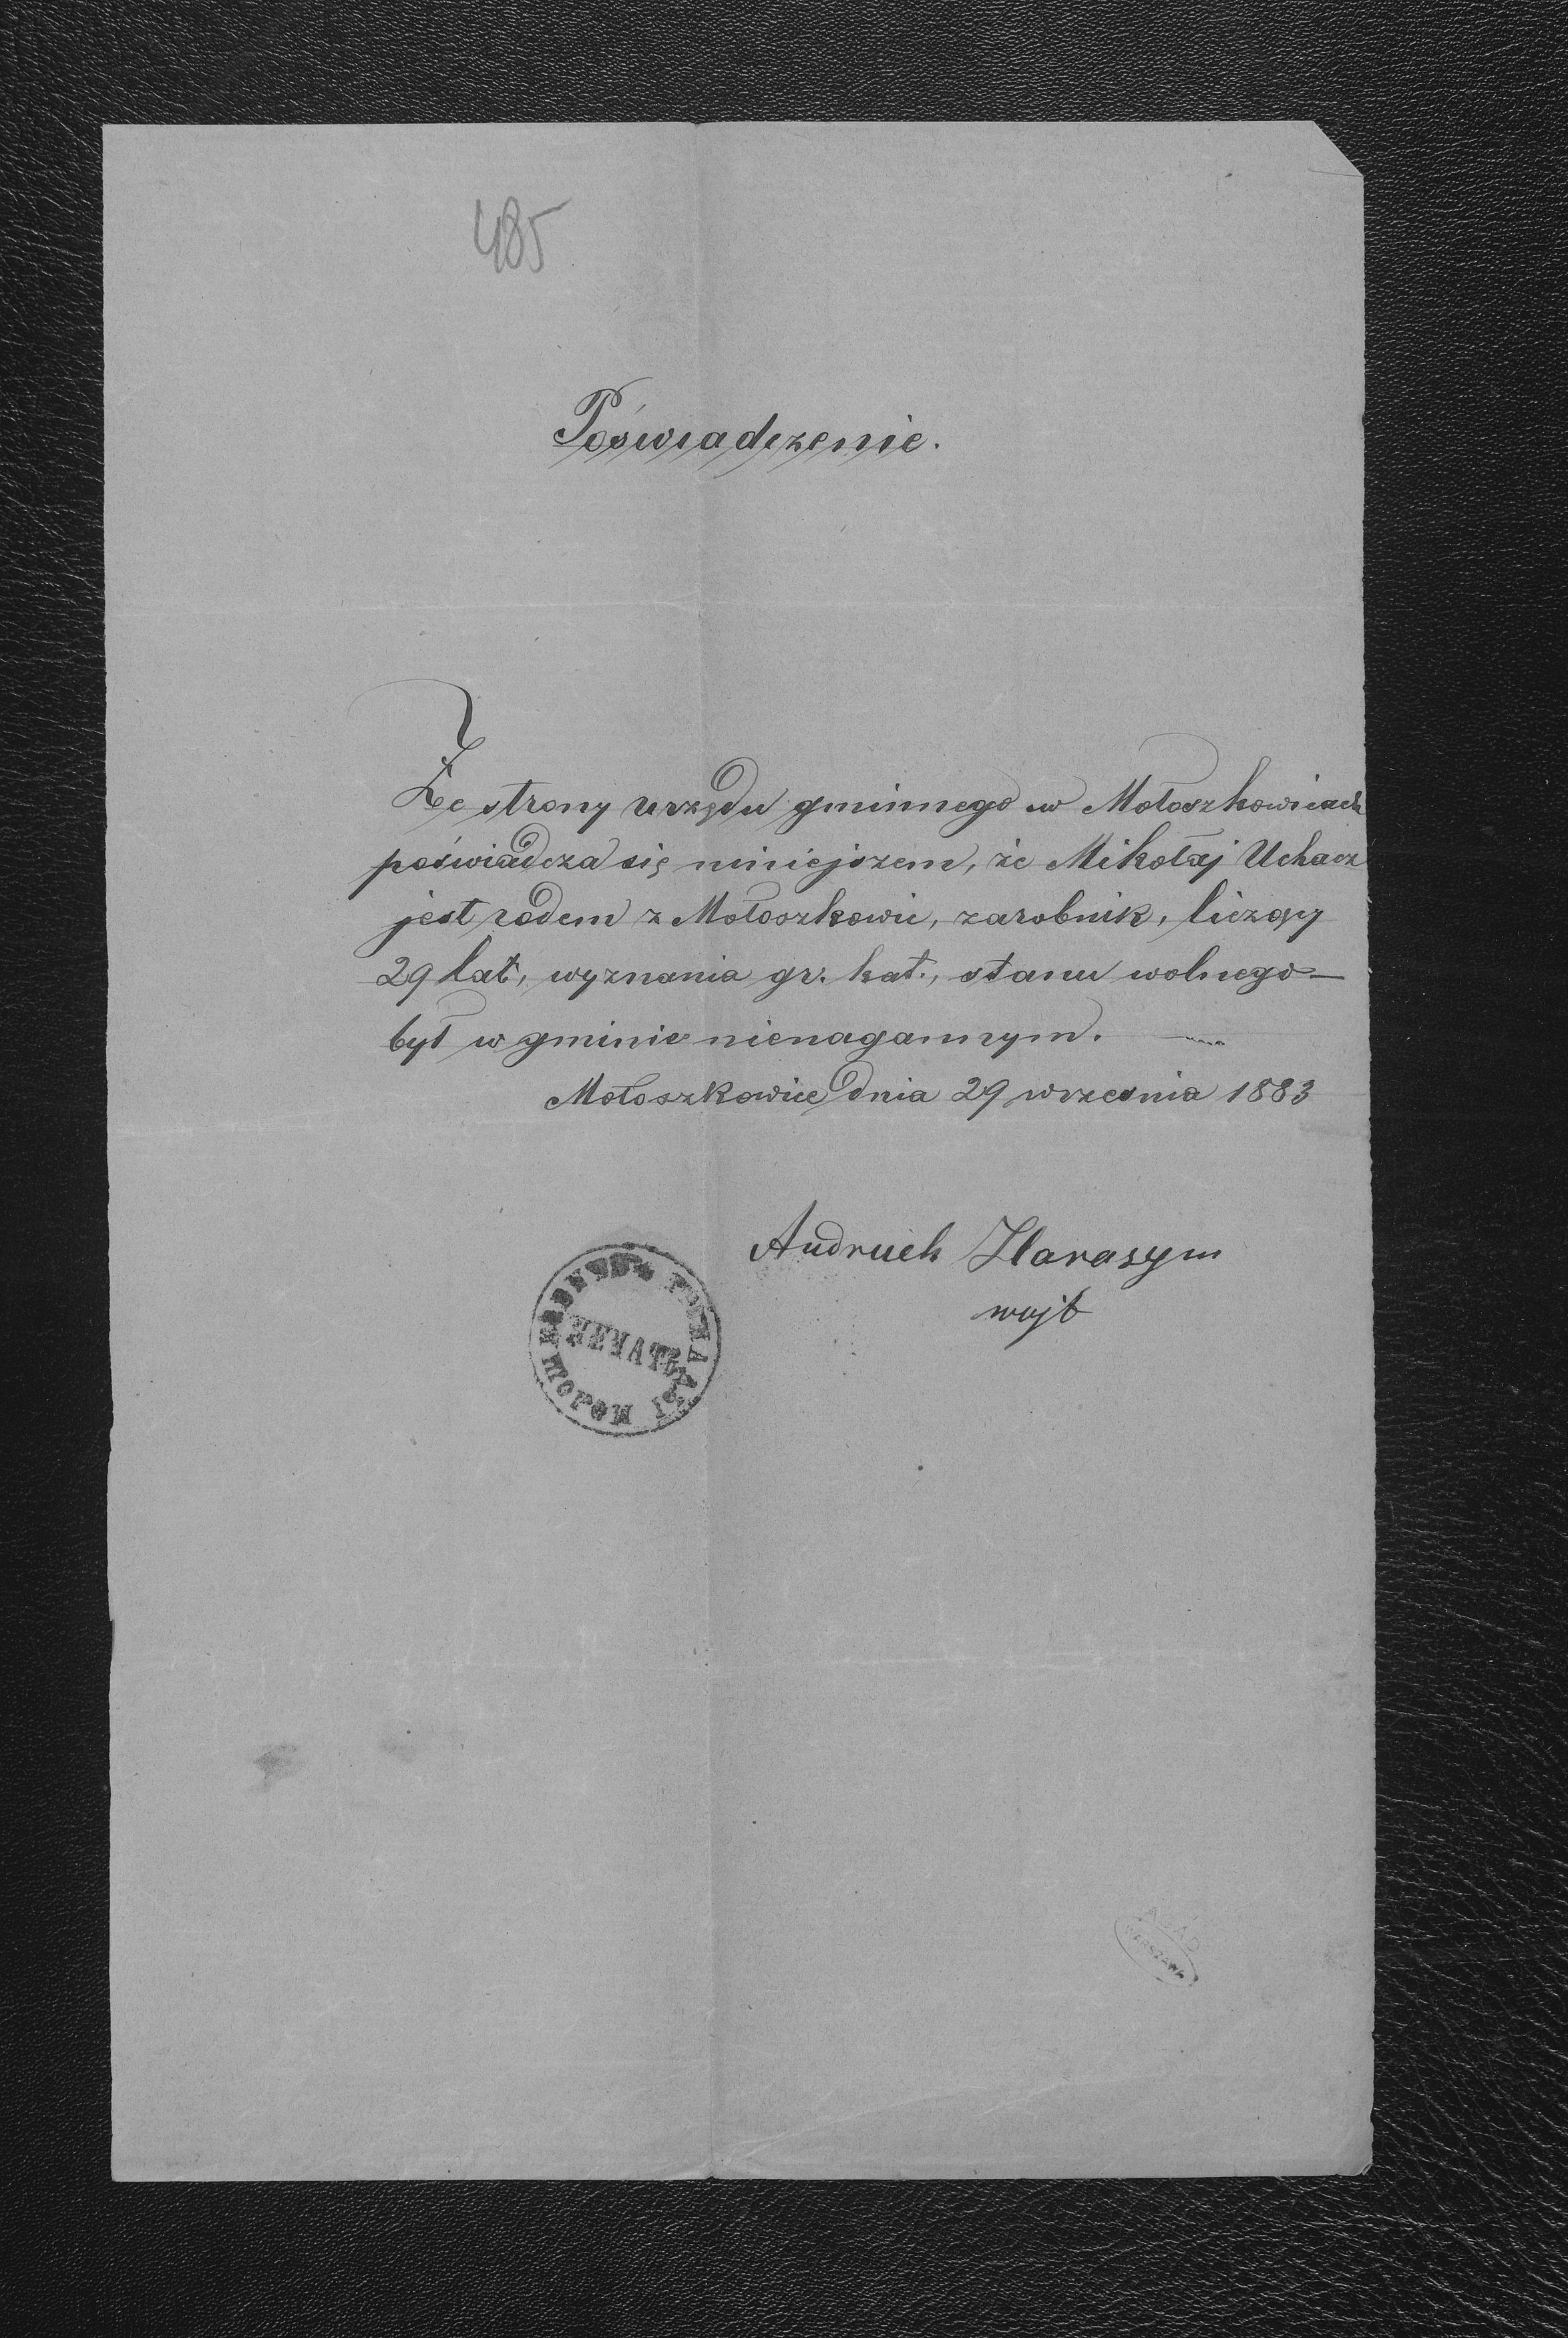 485
Poświadczenie.
Ze strony urzędu gminnego w Mołoszkowicach
poświadcza się niniejszem, że Mikołaj Uchacz
jest rodem z Mołoszkowic, zarobnik, liczący
29 lat, wyznania gr. kat., stanu wolnego—
był w gminie nienagannym.
Mołoszkowice dnia 29 września 1883
Andruch Harasym
wujt
AGAD
WARSZAWA